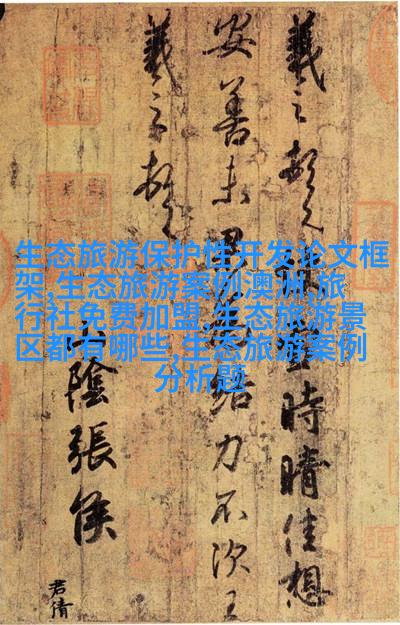 生态旅游保护性开发论文框
架,生态旅游案例澳洲,旅
行社免费加盟,生态旅游景
区都有哪些,生态旅游案例
分析题
羲之頓首 時晴佳想
安善未果 結力不次王
羲之頓首
山陰張侯
君倩